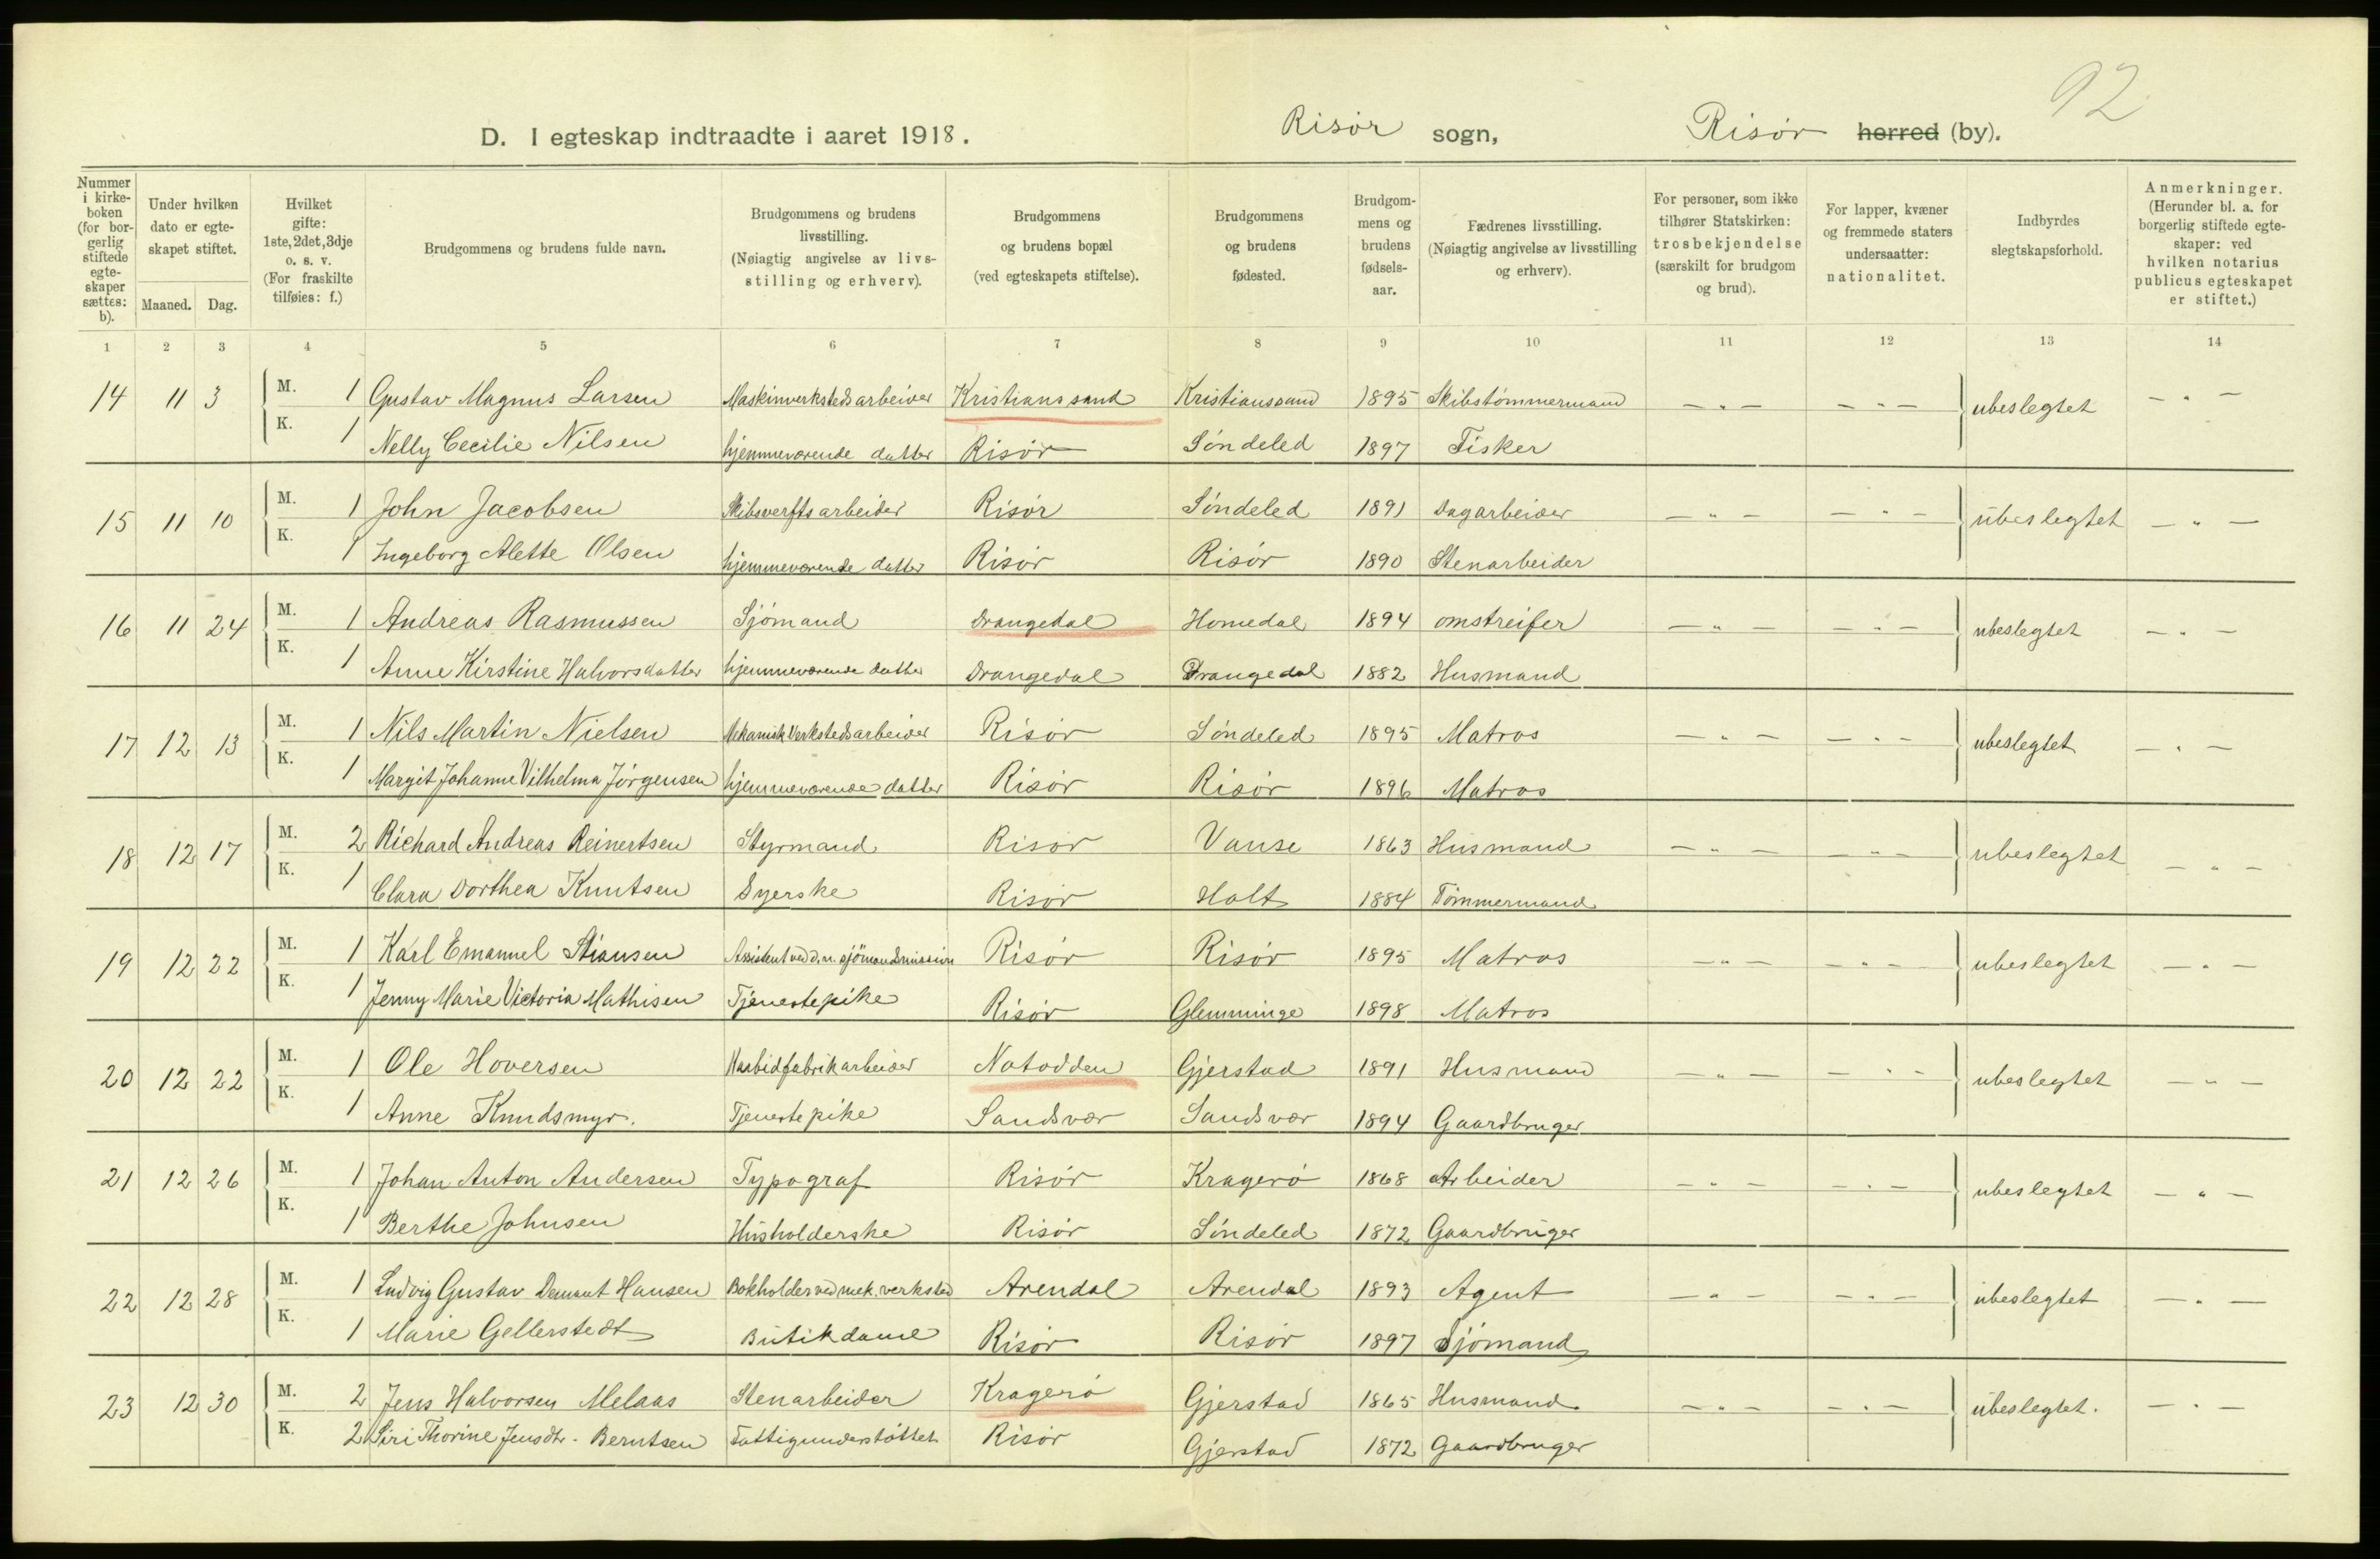 92
D. I egteskap indtraadte i aaret 1918. Risør sogn, Risør herred (by).
Nummer i kirkeboken (for borgerlig stiftede egteskaper sættes: b). Under hvilken dato er egteskapet stiftet. Maaned. Dag. Hvilket gifte: 1ste, 2det, 3dje o. s. v. (For fraskilte tilføies: f.) Brudgommens og brudens fulde navn. Brudgommens og brudens livsstilling. (Nøiagtig angivelse av livsstilling og erhverv). Brudgommens og brudens bopæl (ved egteskapets stiftelse). Brudgommens og brudens fødested. Brudgommens og brudens fødselsaar. Fædrenes livsstilling. (Nøiagtig angivelse av livsstilling og erhverv). For personer, som ikke tilhører Statskirken: trosbekjendelse (særskilt for brudgom og brud). For lapper, kvæner og fremmede staters undersaatter: nationalitet. Indbyrdes slegtskapsforhold. Anmerkninger. (Herunder bl. a. for borgerlig stiftede egteskaper: ved hvilken notarius publicus egteskapet er stiftet.)
1 2 3 4 5 6 7 8 9 10 11 12 13 14
14 11 3 M. 1 Gustav Magnus Larsen Maskinverkstedsarbeider Kristianssand Kristianssand 1895 Skibstømmermand — " — — " — ubeslegtet — " —
K. 1 Nelly Cecilie Nilsen hjemmeværende datter Risør Søndeled 1897 Fisker
15 11 10 M. 1 John Jacobsen Skibsverftsarbeider Risør Søndeled 1891 Dagarbeider — " — — " — ubeslegtet — " —
K. 1 Ingeborg Alette Olsen hjemmeværende datter Risør Risør 1890 Stenarbeider
16 11 24 M. 1 Andreas Rasmussen Sjømand Drangedal Homedal 1894 omstreifer — " — — " — ubeslegtet — " —
K. 1 Anne Kirstine Halvorsdatter hjemmeværende datter Drangedal Drangedal 1882 Husmand
17 12 13 M. 1 Nils Martin Nielsen Mekanisk Verkstedsarbeider Risør Søndeled 1895 Matros — " — — " — ubeslegtet — " —
K. 1 Margit Johanne Vilhelma Jørgensen hjemmeværende datter Risør Risør 1896 Matros
18 12 17 M. 2 Richard Andreas Reinertsen Styrmand Risør Vanse 1863 Husmand — " — — " — ubeslegtet — " —
K. 1 Clara Dorthea Knutsen Syerske Risør Holt 1884 Tømmermand
19 12 22 M. 1 Karl Emanuel Stiansen Assistent ved d. n. sjømandsmission Risør Risør 1895 Matros — " — — " — ubeslegtet — " —
K. 1 Jenny Marie Victoria Mathisen Tjenestepike Risør Glemminge 1898 Matros
20 12 22 M. 1 Ole Hoversen Karbidfabrikarbeider Notodden Gjerstad 1891 Husmand — " — — " — ubeslegtet — " —
K. 1 Anne Knudsmyr. Tjenestepike Sandsvær Sandsvær 1894 Gaardbruger
21 12 26 M. 1 Johan Anton Andersen Typograf Risør Kragerø 1868 Arbeider — " — — " — ubeslegtet — " —
K. 1 Berthe Johnsen Husholderske Risør Søndeled 1872 Gaardbruger
22 12 28 M. 1 Ludvig Gustav Demant Hansen Bokholder ved mek. verksted Arendal Arendal 1893 Agent — " — — " — ubeslegtet — " —
K. 1 Marie Gellerstedt Butikdame Risør Risør 1897 Sjømand
23 12 30 M. 2 Jens Halvorsen Melaas Stenarbeider Kragerø Gjerstad 1865 Husmand — " — — " — ubeslegtet. — " —
K. 2 Siri Thorine Jensdtr. Berntsen Fattigunderstøttet Risør Gjerstad 1872 Gaardbruger